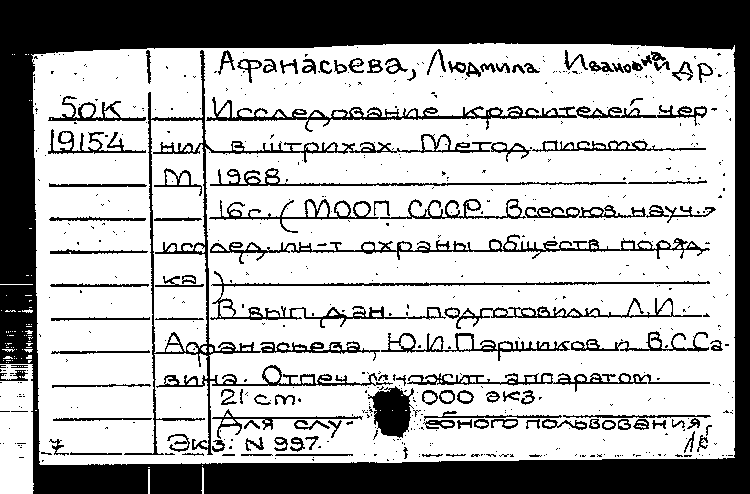 Афанасьева, Людмила Ивановна и др.
50К Исследование красителей чер-
19154 нил в штрихах. Метод. письмо.
М., 1968.
16с. (МООП СССР. Всесоюз. науч.-
исслед. ин-т охраны обществ. поряд-
ка).
В вып. дан.: подготовили Л.И.
Афанасьева, Ю.И.Паршиков и В.С.Са-
вина. Отпеч. множит. аппаратом.
21 ст. 1000 экз.
Для слу- ебного пользования
7 Экз. N 997.